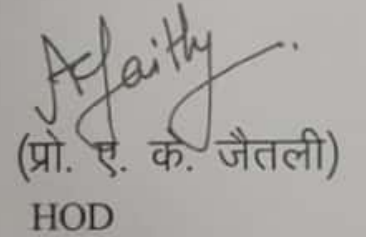 AJaitly
(प्रो. ए. के. जैतली)
HOD